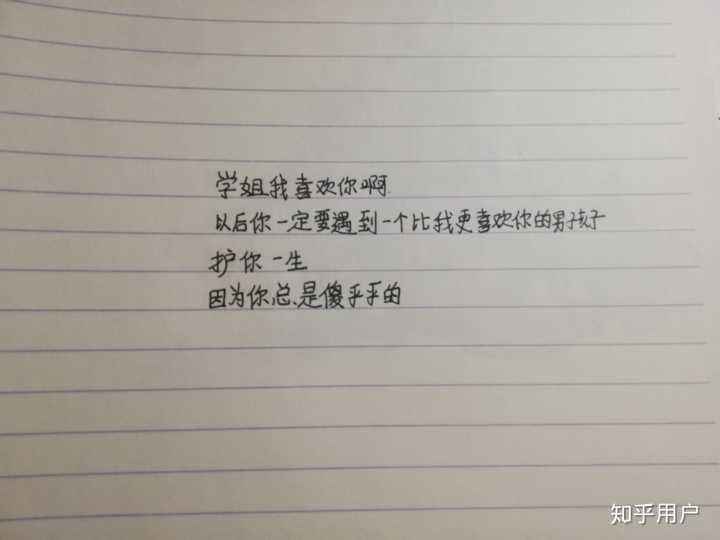 学姐我喜欢你啊
以后你一定要遇到一个比我更喜欢你的男孩子
护你一生
因为你总是傻乎乎的
知乎用户